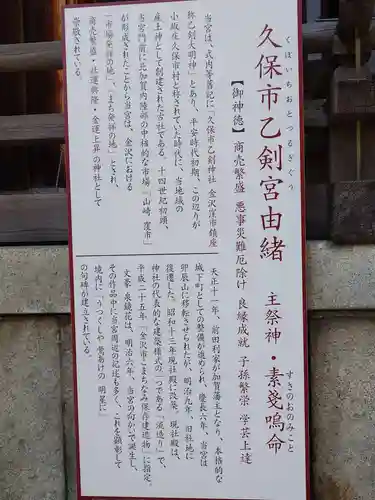 久保市乙剣宮由緒
くぼいちおとつるぎぐう
主祭神・素戔嗚命
すさのおのみこと
【御神徳】商売繁盛 悪事災難厄除け 良縁成就 子孫繁栄 学芸上達
当宮は、式内等旧記に「久保市乙剣神社 金沢窪市鎮座
称乙剣大明神」とあり、平安時代初期、この辺りが
小坂庄久保市村と称されていた時代に、当地域の
産土神として創建された古社である。十四世紀初頭、
当宮門前に北加賀内陸部の中核的な市場「山崎 窪市」
が形成されたことから当宮は、金沢における
「市場発祥の地」、「まち発祥の地」とされ、
商売繁盛・社運興隆・金運上昇の神社として
崇敬されている。
天正十一年、前田利家が加賀藩主となり、本格的な
城下町としての整備が進められ、慶長六年、当宮は
卯辰山に移転させられたが、明治九年、旧社地に
復還した。昭和十三年現社殿に改築。現社殿は、
神社の代表的な建築様式の一つである「流造り」で、
平成二十五年「金沢市こまちなみ保存建造物」に指定。
文豪・泉鏡花は、明治六年、当宮の向かいで誕生し、
その作品中に当宮周辺の記述も多く、これを顕彰して
境内に「うつくしや鶯あけの 明星に」
の句碑が建立されている。